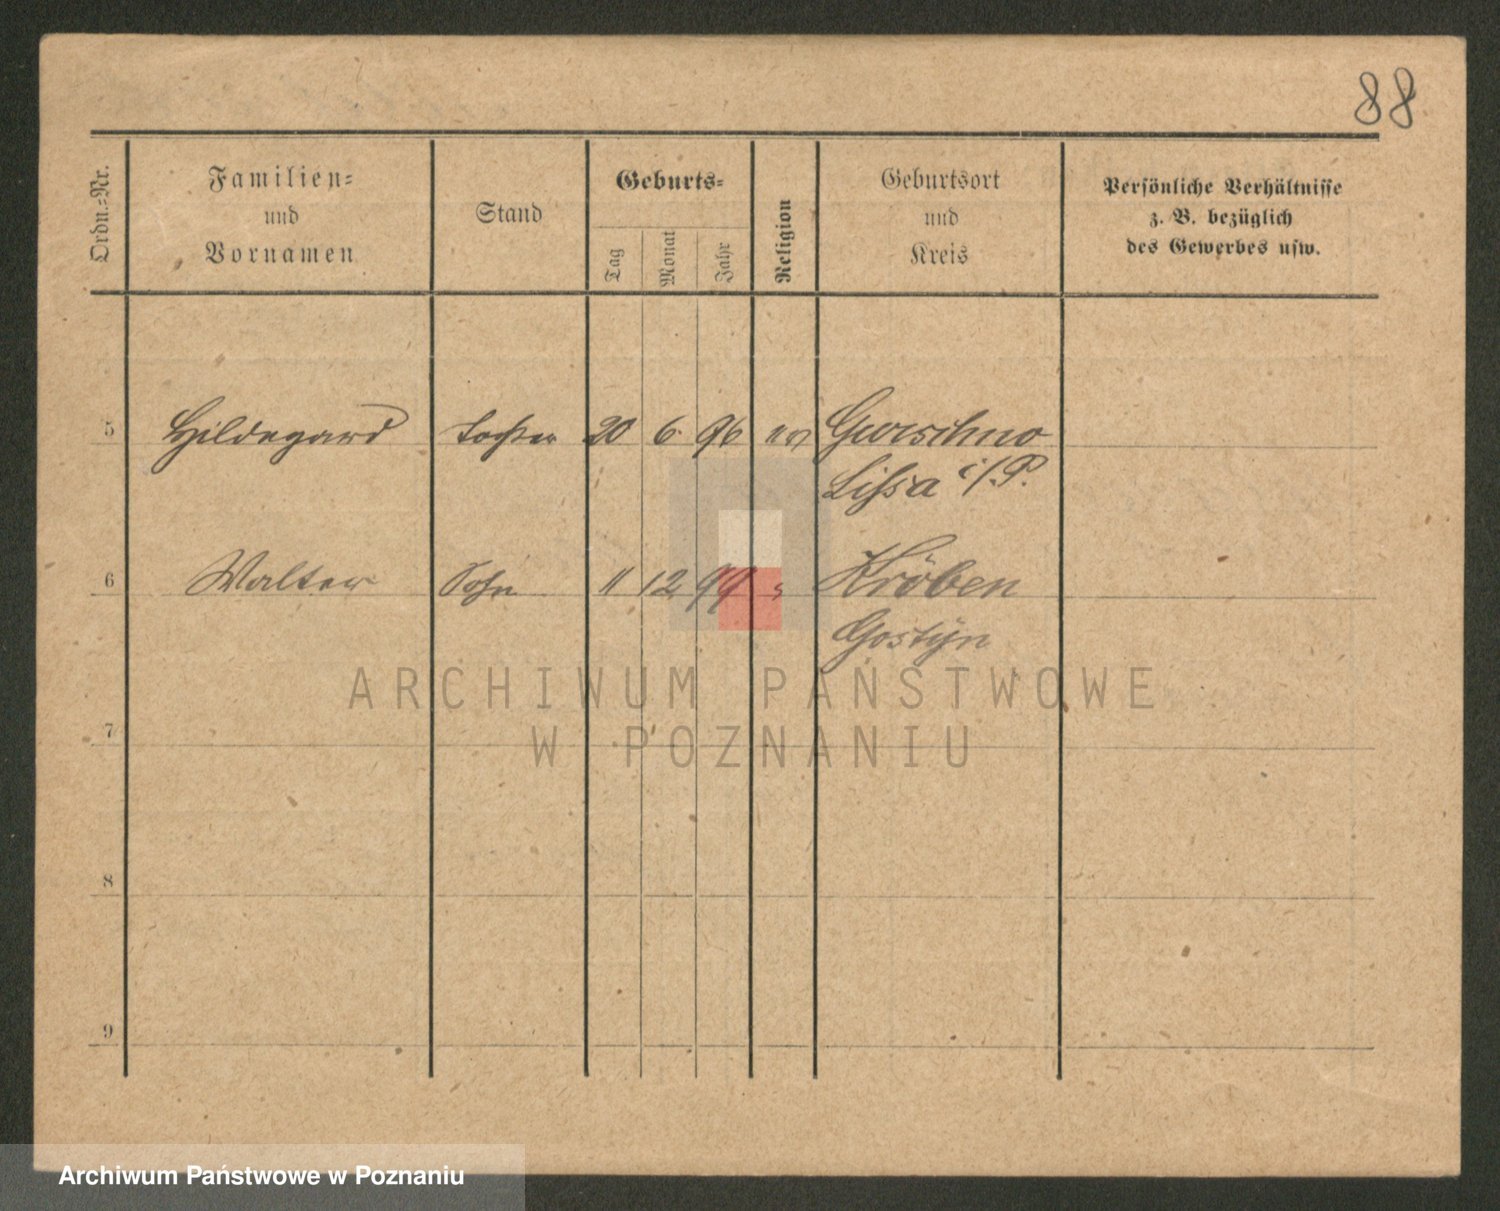 88
Ordn.-Nr.
Familien-
und
Vornamen
Stand
Geburts-
Tag
Monat
Jahr
Religion
Geburtsort
und
Kreis
Persönliche Verhältnisse
z. B. bezüglich
des Gewerbes usw.
5 Hildegard Tochter 20 6. 96 ev Gurschno
Lissa i/P.
6 Walter Sohn 11 12 99 Kröben
Gostÿn
7
8
9
ARCHIWUM PAŃSTWOWE
W POZNANIU
Archiwum Państwowe w Poznaniu